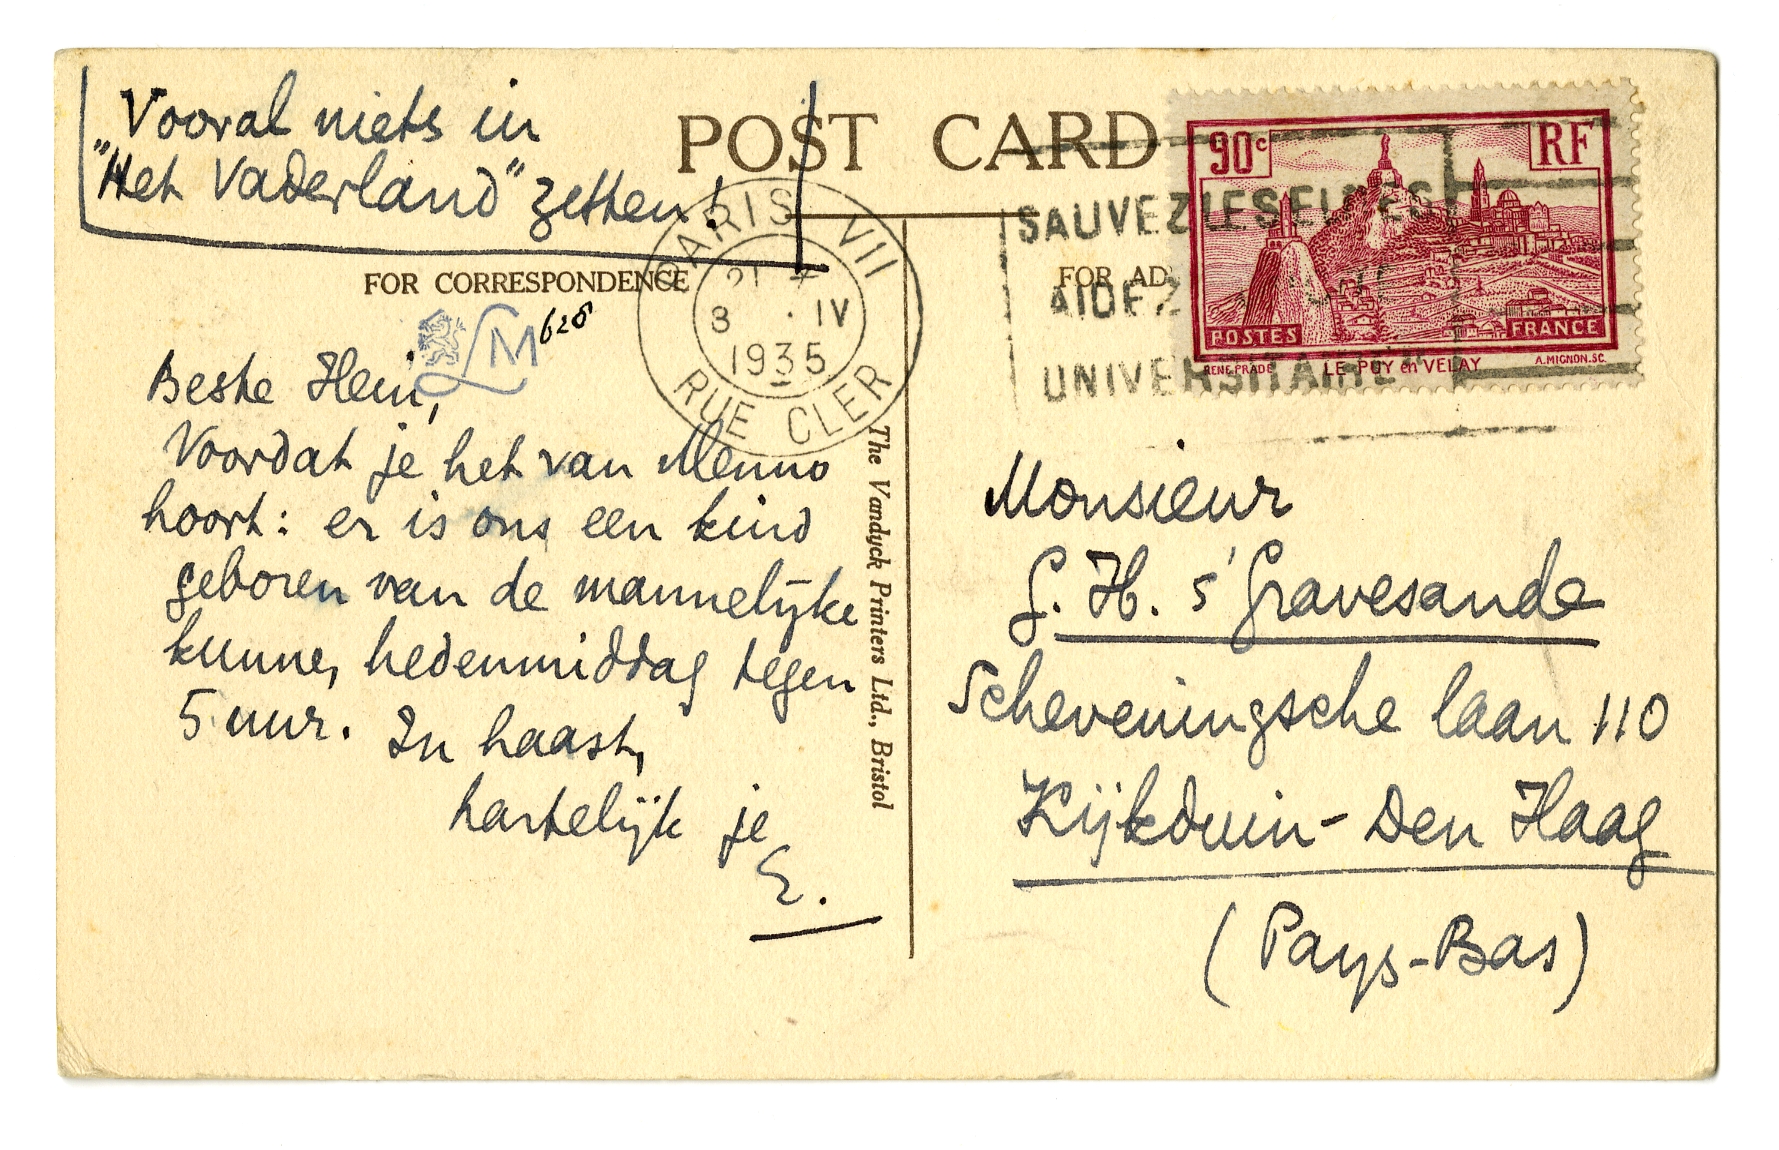 Vooral niets in
"Het Vaderland" zetten!
POST CARD
FOR CORRESPONDENCE
LM 628
Beste Hein,
Voordat je het van Menno
hoort: er is ons een kind
geboren van de mannelijke
kunne, hedenmiddag tegen
5 uur. In haast,
hartelijk je
E.
PARIS VII
21
8 · IV
1935
RUE CLER
The Vandyck Printers Ltd., Bristol
FOR AD
SAUVEZ LES
AIDEZ
UNIVERSITAIRE
90c
RF
POSTES
FRANCE
RENE PRADE LE PUY en VELAY A. MIGNON. SC.
Monsieur
G. H. s'Gravesande
Scheveningsche laan 110
Kijkduin - Den Haag
(Pays-Bas)